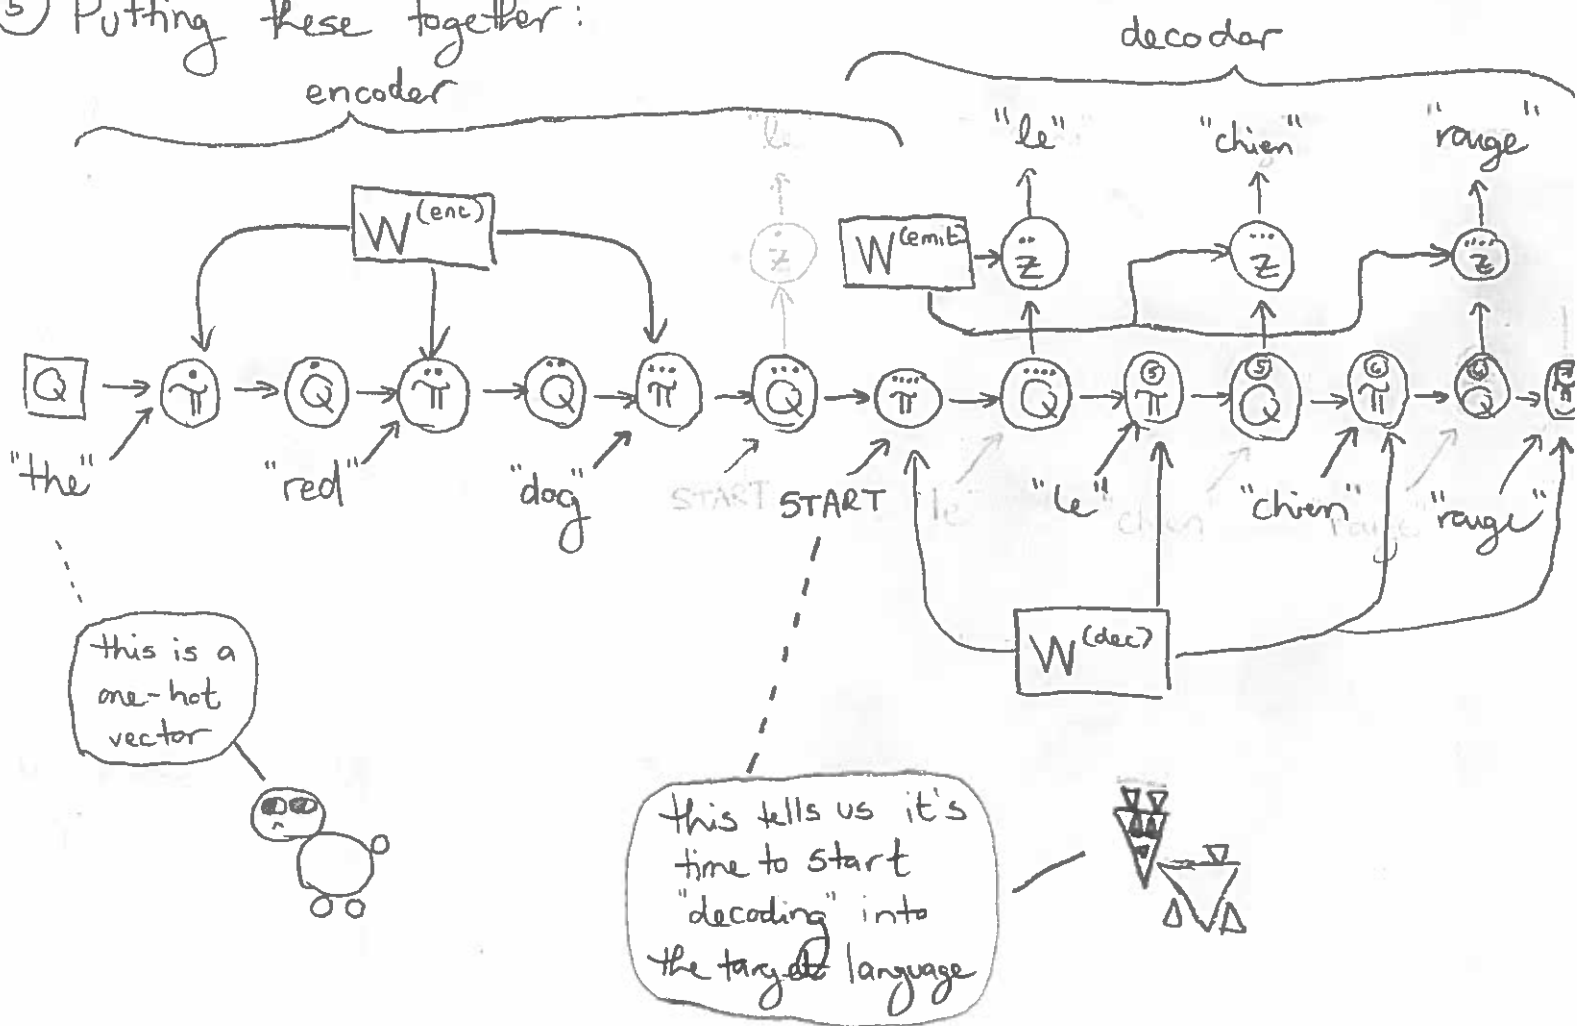 ⑤ Putting these together:
decoder
encoder
"le"
"le" "chien" "rouge"
W^(enc)
z̈ z⃛ z⃜
ż
W^(emit)
Q π̇ Q̇ π̈ Q̈ π⃛ Q⃛ π⃜ Q⃜ ⑤ π ⑤ Q ⑥ π ⑥ Q π
"the" "red" "dog" START START le "le" chien "chien" rouge "rouge"
W^(dec)
this is a
one-hot
vector
this tells us it's
time to start
"decoding" into
the target language